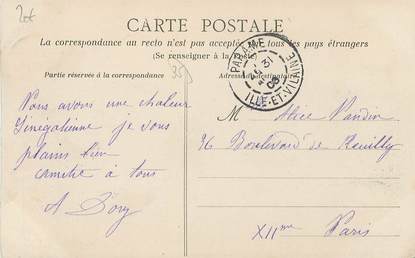 20t
CARTE POSTALE
La correspondance au recto n'est pas acceptée tous les pays étrangers
(Se renseigner à la Poste)
Partie réservée à la correspondance
Adresse du destinataire
359
PARAMÉ
31
08
ILLE-ET-VILAINE
Nous avons une chaleur
Sénégalienne je vous
plains bien
amitié à tous
A Dory
M Alice Vandin
76 Boulevard de Reuilly
XIIme Paris